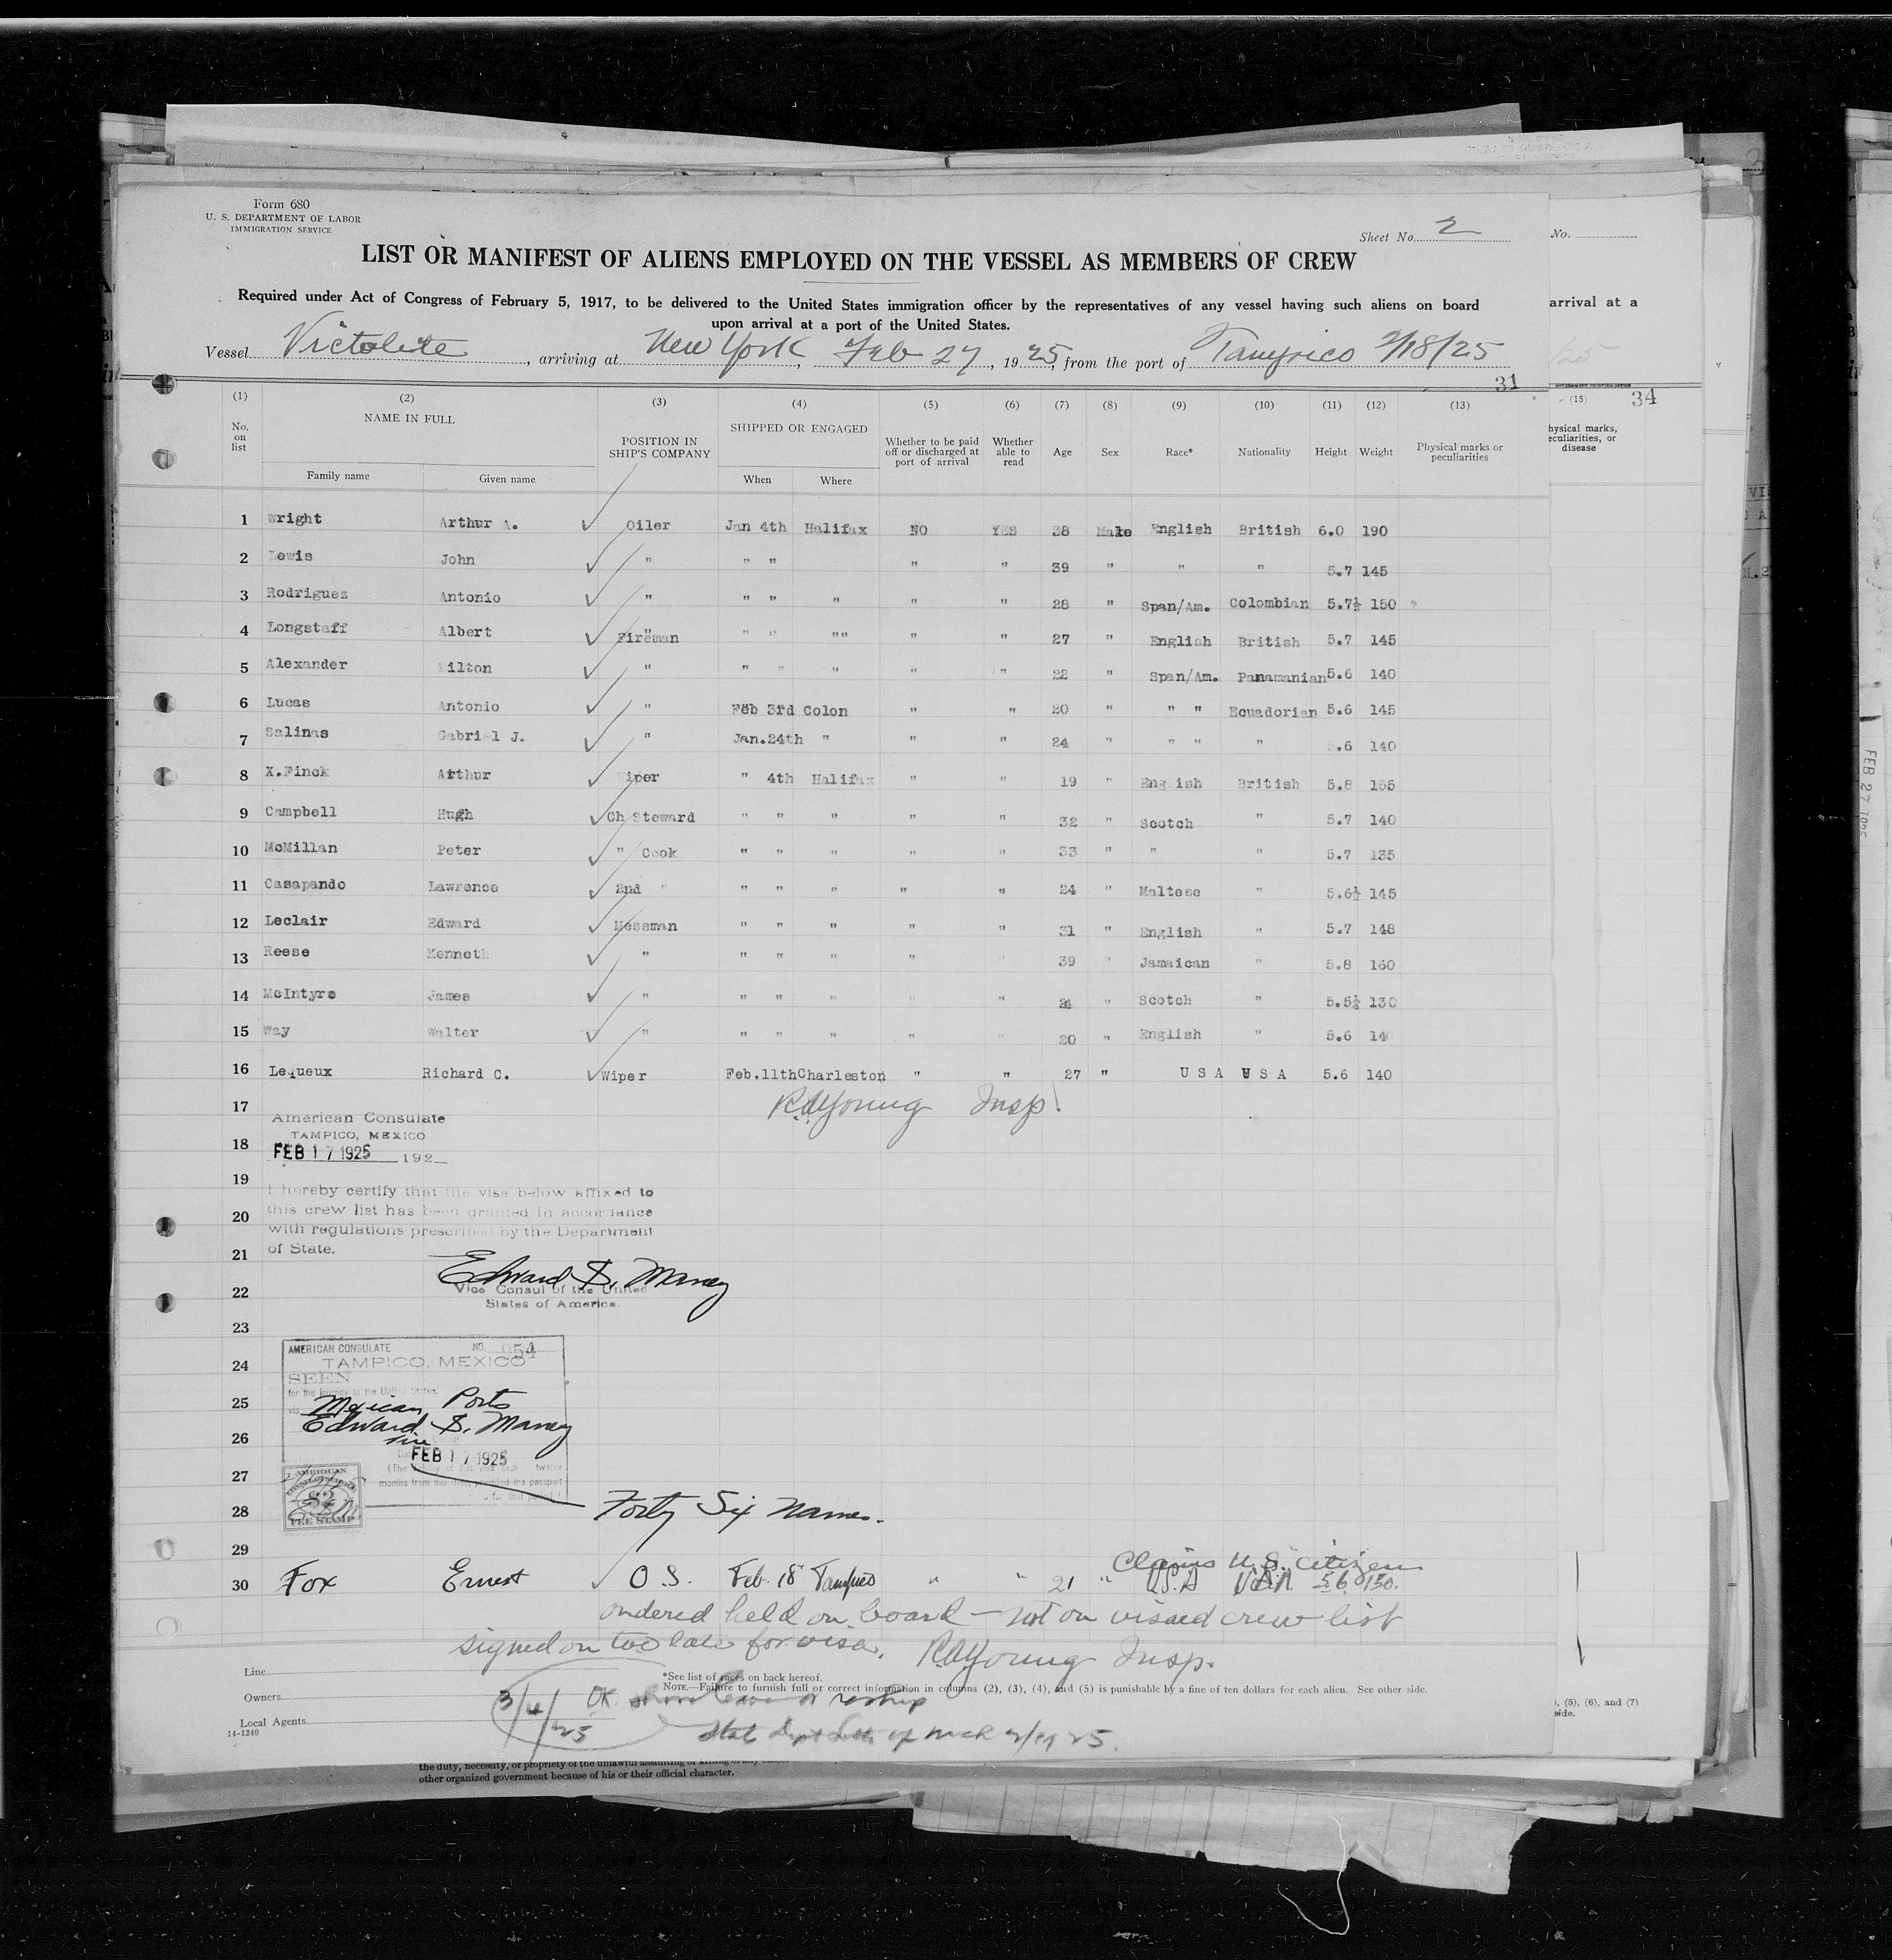 Form 680
U. S. DEPARTMENT OF LABOR
IMMIGRATION SERVICE
Sheet No. 2
No.
LIST OR MANIFEST OF ALIENS EMPLOYED ON THE VESSEL AS MEMBERS OF CREW
Required under Act of Congress of February 5, 1917, to be delivered to the United States immigration officer by the representatives of any vessel having such aliens on board
upon arrival at a port of the United States.
arrival at a
Vessel Victolite, arriving at New York, Feb 27, 1925, from the port of Tampico 2/18/25
31
34
(1) (2) (3) (4) (5) (6) (7) (8) (9) (10) (11) (12) (13) (15)
No. on list NAME IN FULL POSITION IN SHIP'S COMPANY SHIPPED OR ENGAGED Whether to be paid off or discharged at port of arrival Whether able to read Age Sex Race* Nationality Height Weight Physical marks or peculiarities
hysical marks, eculiarities, or disease
Family name Given name When Where
1 Wright Arthur A. ✓ Oiler Jan 4th Halifax NO YES 38 Male English British 6.0 190
2 Lewis John ✓ " " " " " 39 " " " 5.7 145
3 Rodriguez Antonio ✓ " " " " " " 28 " Span/Am. Colombian 5.7½ 150
4 Longstaff Albert ✓ Fireman " " "" " " 27 " English British 5.7 145
5 Alexander ilton ✓ " " " " " " 22 " Span/Am. Panamanian 5.6 140
6 Lucas Antonio ✓ " Feb 3rd Colon " " 20 " " " Ecuadorian 5.6 145
7 Salinas Gabriel J. ✓ " Jan.24th " " " 24 " " " " 5.6 140
8 X.Finck Arthur ✓ Wiper " 4th Halifax " " 19 " English British 5.8 155
9 Campbell Hugh ✓ Ch Steward " " " " " 32 " Scotch " 5.7 140
10 McMillan Peter ✓ " Cook " " " " " 33 " " " 5.7 135
11 Casapando Lawrence ✓ 2nd " " " " " " 24 " Maltese " 5.6½ 145
12 Leclair Edward ✓ Messman " " " " " 31 " English " 5.7 148
13 Reese Kenneth ✓ " " " " " " 39 " Jamaican " 5.8 160
14 McIntyre James ✓ " " " " " " " Scotch " 5.5½ 130
15 Way Walter ✓ " " " " " " 20 " English " 5.6 14
16 Lequeux Richard C. ✓ Wiper Feb.11th Charleston " " 27 " U S A U S A 5.6 140
17 R.A. Young Insp.
American Consulate
TAMPICO, MEXICO
18 FEB 17 1925 192
19 I hereby certify that the visa below affixed to
20 this crew list has been granted in accordance
with regulations prescribed by the Department
21 of State.
Edward S. Maney
22 Vice Consul of the United
States of America.
23
AMERICAN CONSULATE NO. 954
24 TAMPICO, MEXICO
SEEN
for the journey to the United States
25 via Mexican Ports
Edward S. Maney
26 Vice
FEB 17 1925
27
(The twelve
months from this provided the passport
AMERICAN
$2
FEE STAMP
28 Forty Six Names.
29 Claims U.S. Citizen
30 Fox Ernest ✓ O S. Feb. 18 Tampico " " 21 " U.S.A U.S.A. 5.6 150.
ordered held on board — not on visaed crew list
signed on too late for visa. R.A. Young Insp.
Line
*See list of races on back hereof.
Owners
NOTE.—Failure to furnish full or correct information in columns (2), (3), (4), and (5) is punishable by a fine of ten dollars for each alien. See other side.
3/4/25 OK. shore leave or reship
Local Agents
14-1240
State Dept
), (5), (6), and (7)
side.
the duty, necessity, or propriety of the unlawful assaulting or killing
other organized government because of his or their official character.
FEB 27 1925